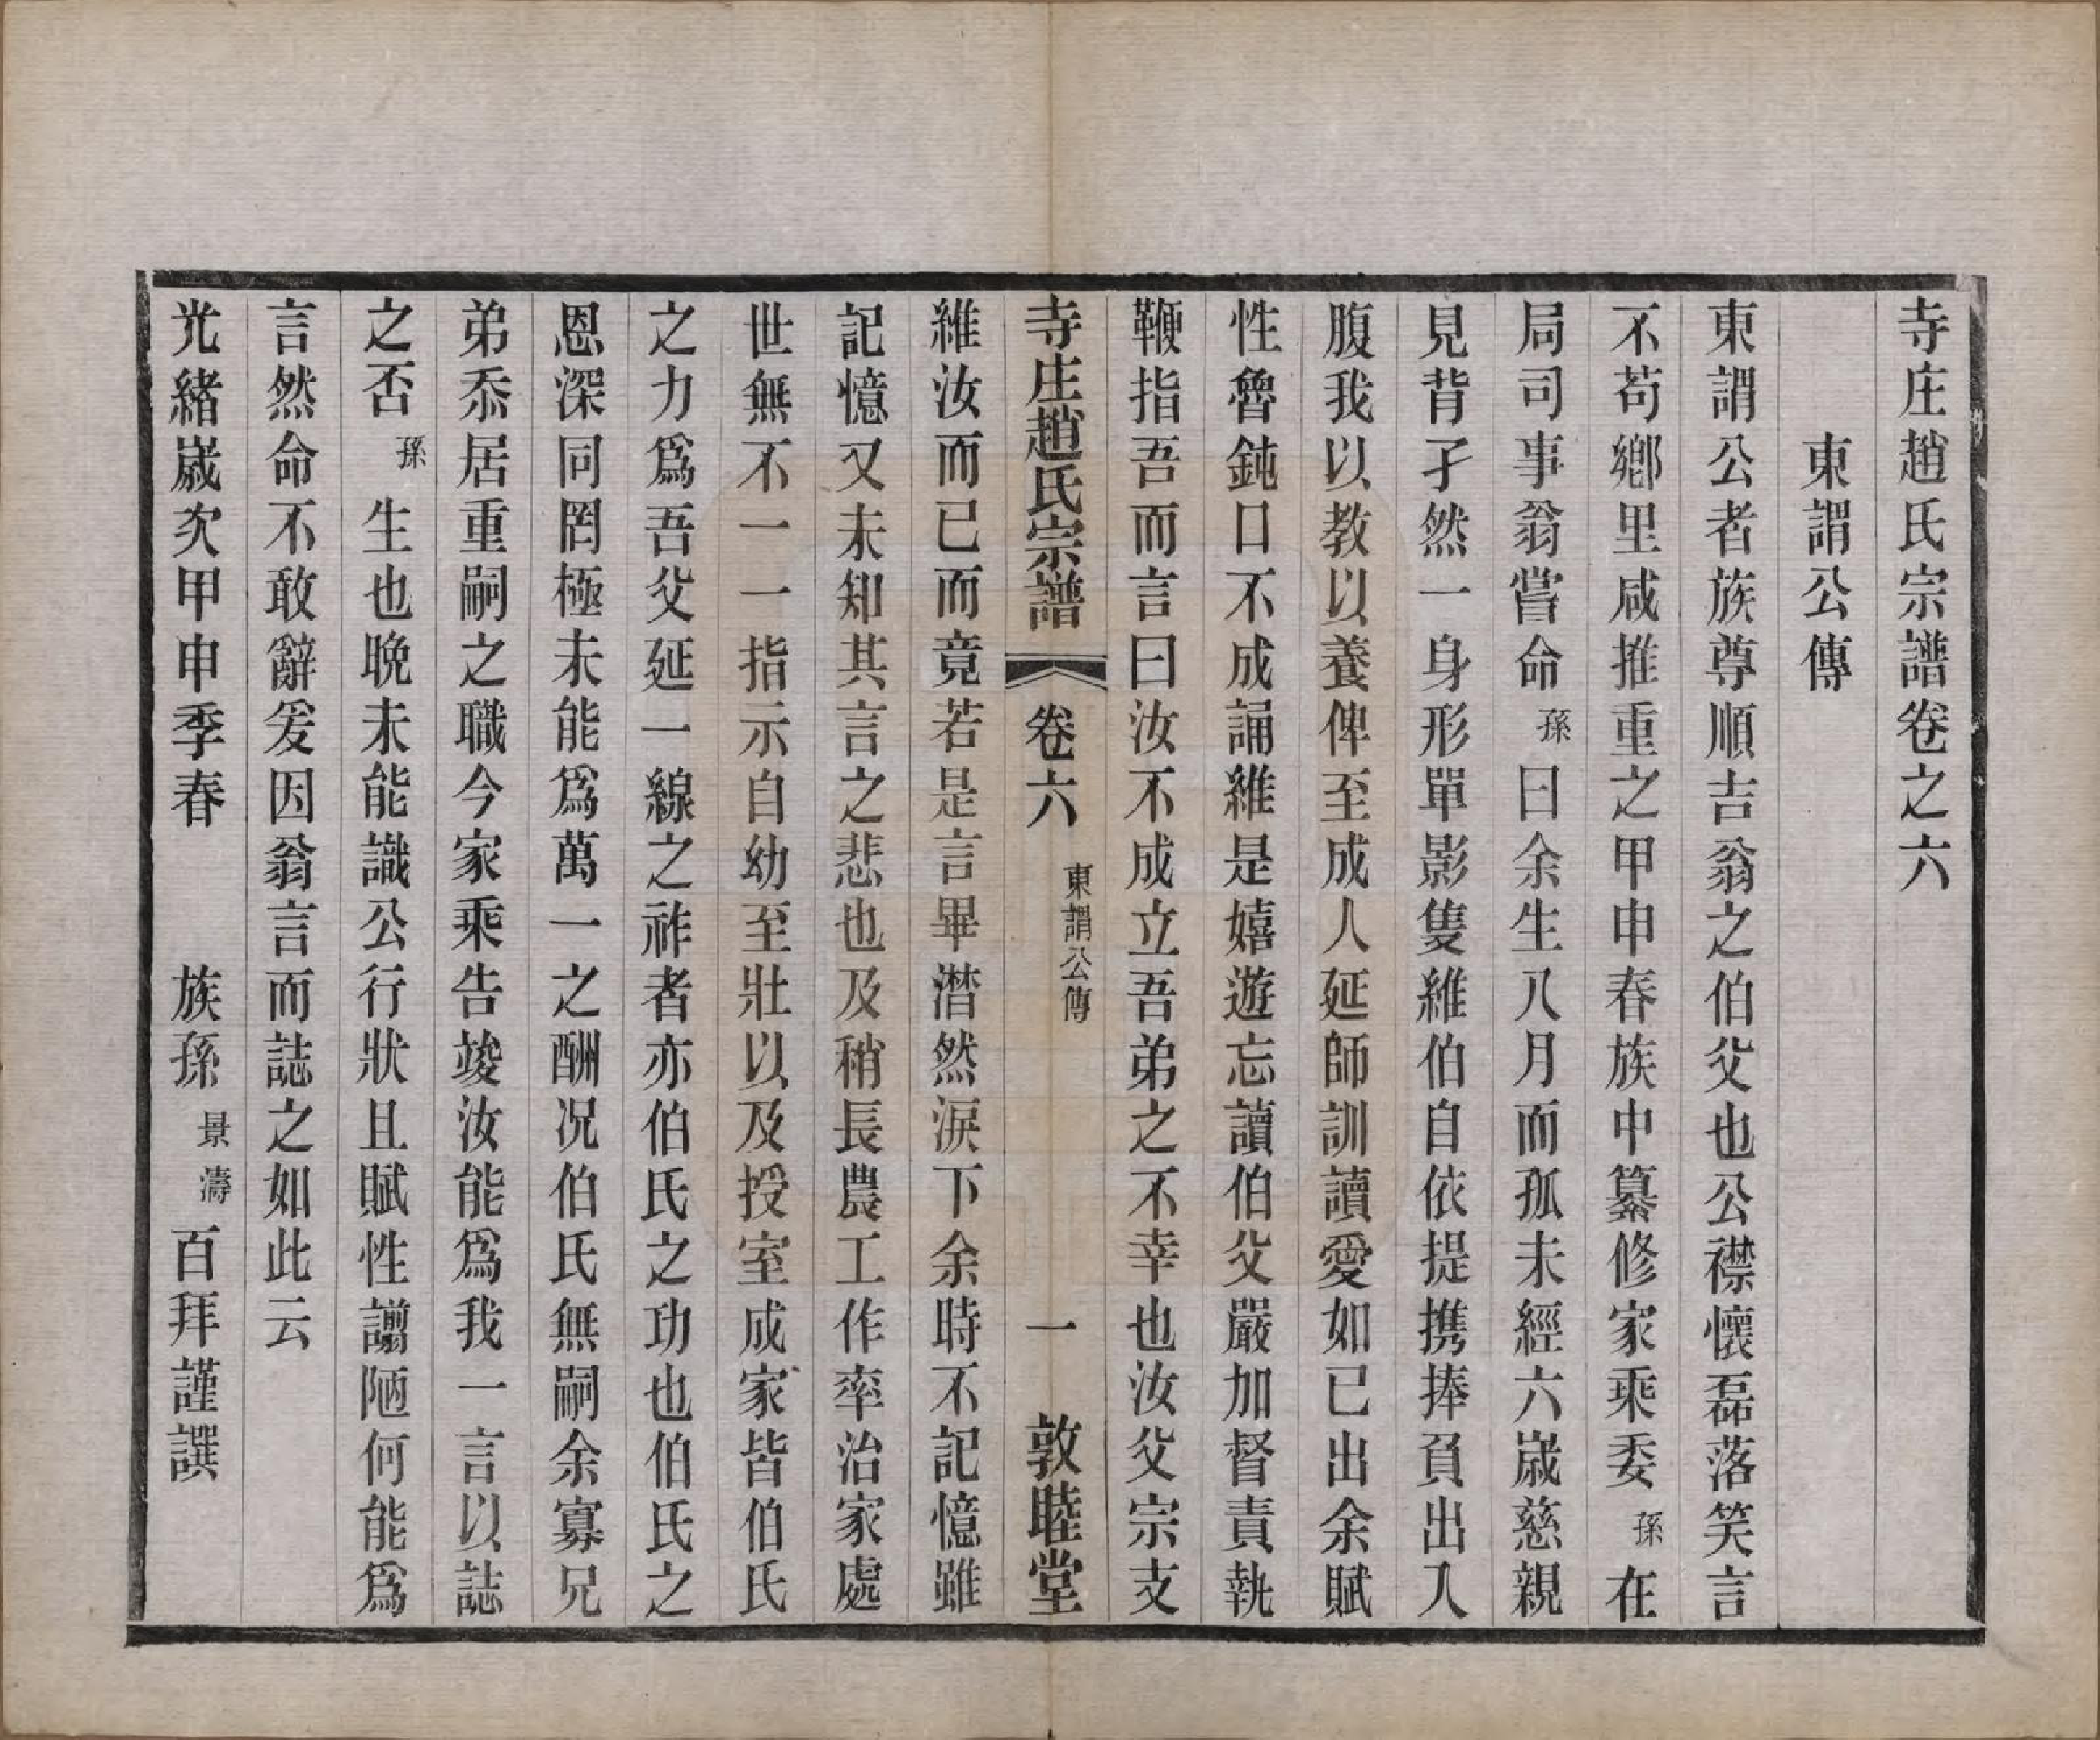 寺庄趙氏宗譜卷之六
東謂公傳
東謂公者族尊順吉翁之伯父也公襟懷磊落笑言
不苟鄉里咸推重之甲申春族中纂修家乘委孫在
局司事翁嘗命孫曰余生八月而孤未經六歲慈親
見背孑然一身形單影隻維伯自依提携捧負出入
腹我以教以養俾至成人延師訓讀愛如已出余賦
性魯鈍口不成誦維是嬉遊忘讀伯父嚴加督責執
鞭指吾而言曰汝不成立吾弟之不幸也汝父宗支
寺庄趙氏宗譜 卷六 東謂公傳 一 敦睦堂
維汝而已而竟若是言畢潸然淚下余時不記憶雖
記憶又未知其言之悲也及稍長農工作率治家處
世無不一一指示自幼至壯以及授室成家皆伯氏
之力爲吾父延一線之祚者亦伯氏之功也伯氏之
恩深同罔極未能爲萬一之酬況伯氏無嗣余寡兄
弟忝居重嗣之職今家乘告竣汝能爲我一言以誌
之否孫生也晩未能識公行狀且賦性謭陋何能爲
言然命不敢辭爰因翁言而誌之如此云
光緒歲次甲申季春 族孫景濤百拜謹譔